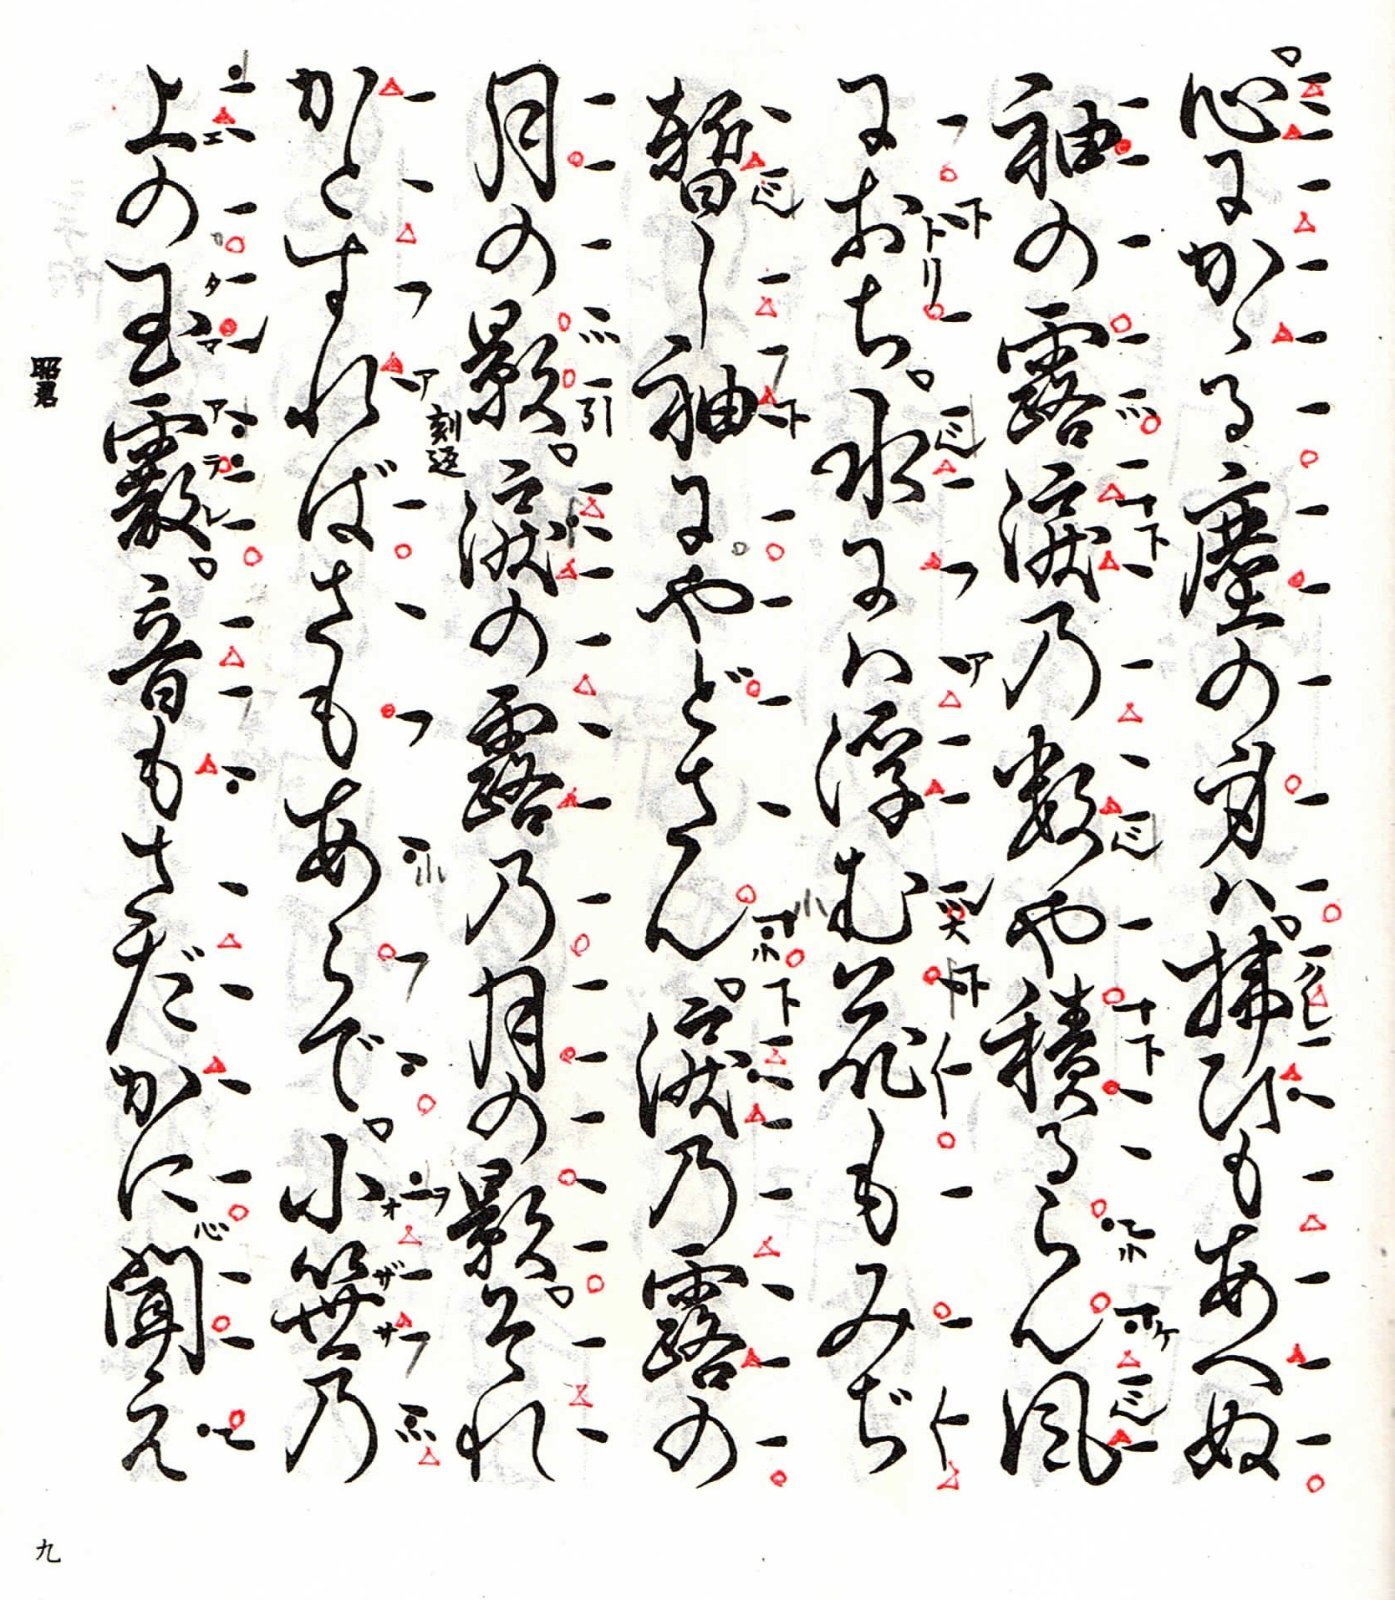 心にかゝる塵の身ハ。拂ひもあへぬ
袖の露涙乃数や積るらん風
におち。水にハ浮む花もみぢ
暫し袖にやどさん。涙乃露の
月の影。涙の露乃月の影。それ
かとすればさもあらで。小笹乃
上の玉霰。音もさだかに聞え
昭君
九